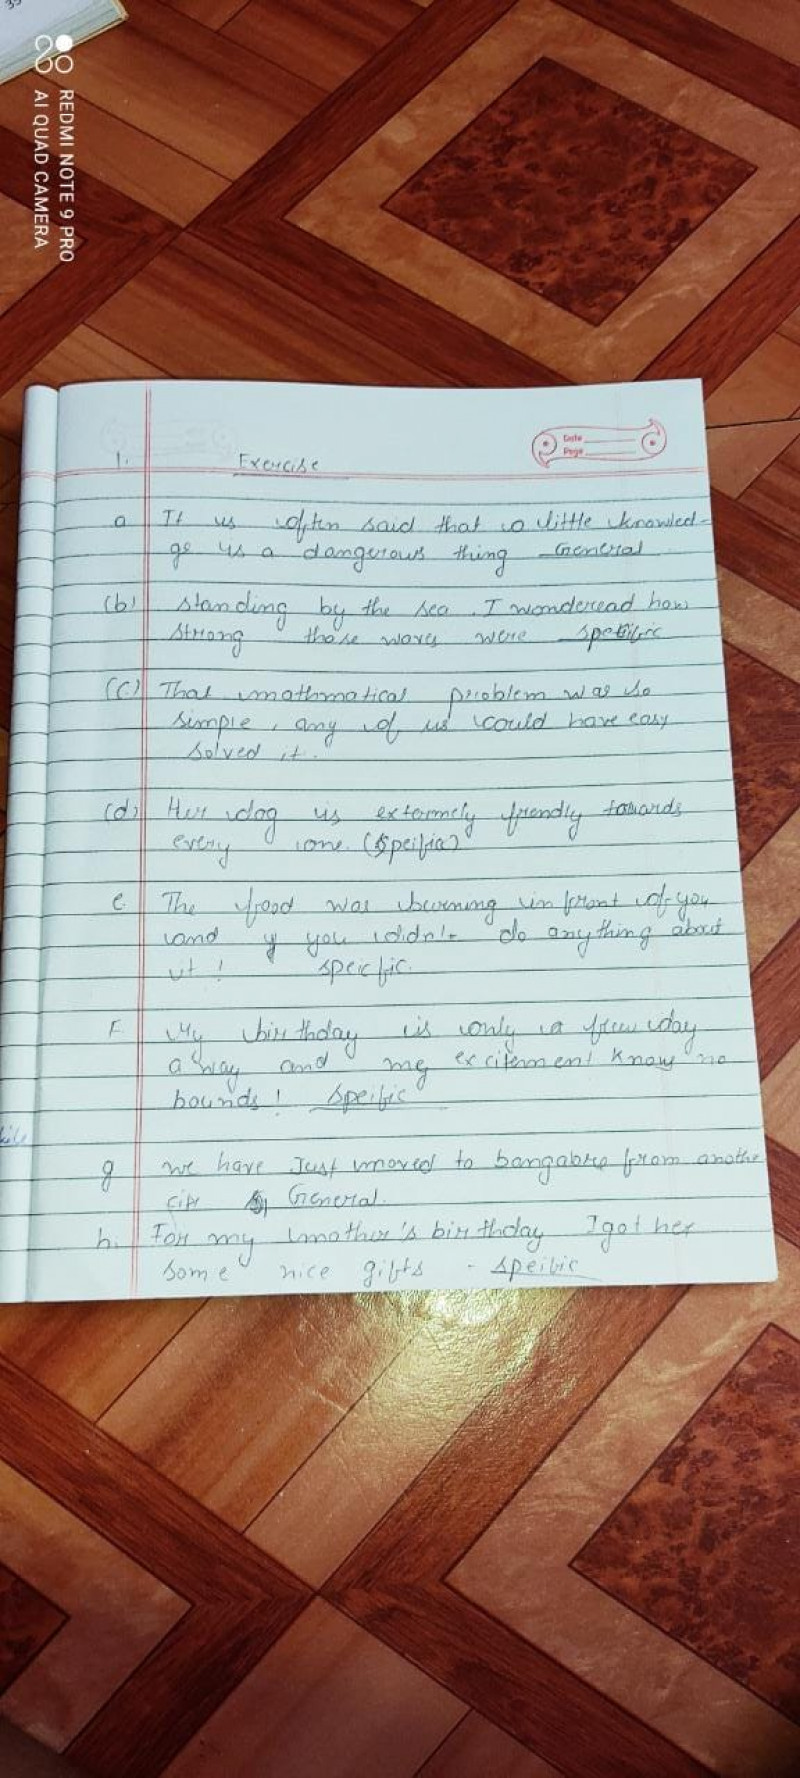 REDMI NOTE 9 PRO
AI QUAD CAMERA
Date
Page
1. Exercise
a It is often said that a little knowled-
ge is a dangerous thing General
(b) standing by the sea. I wonderead how
strong those waves were speific
(c) That mathmatical problem was so
simple, any of us could have easy
solved it.
(d) Her dog is extermely friendly towards
every one. (Speific)
e The food was burning infront of you
and y you didn't do anything about
it! speicfic.
F. My birthday is only a few day
a way and my excitement know no
bounds! speific
g we have Just moved to bangalore from anothe
General.
h. For my mother's birthday I got her
some nice gifts - speific